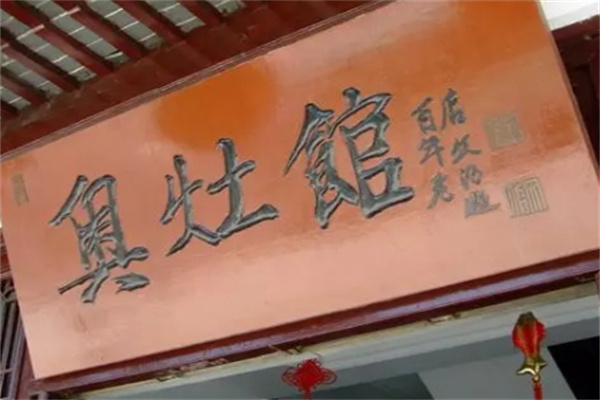 奥灶館
百年老
店